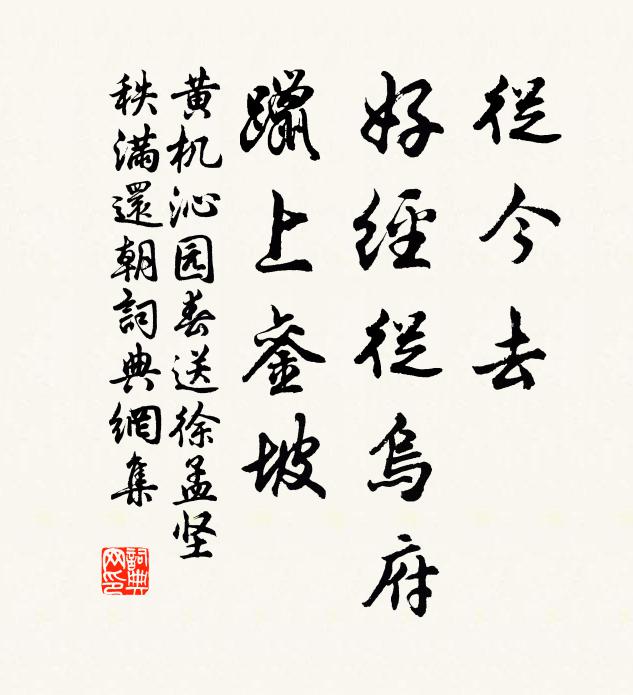 從今去
好經從烏府
躐上銮坡
黄机沁园春送徐孟坚
秩滿還朝詞典網集
詞典网印